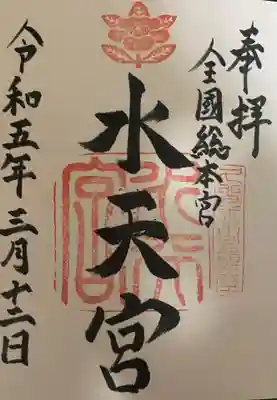 奉拝
全國総本宮
水天宮
令和五年三月十二日